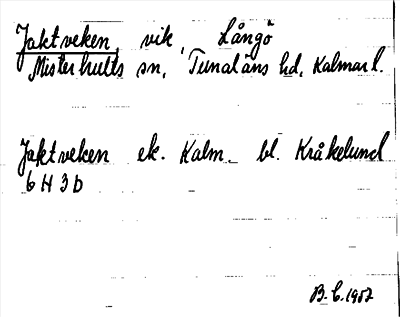 Jaktveken, vik, Långö
Misterhults sn, Tunaläns hd, Kalmar l.
Jaktveken ek. Kalm. bl. Kråkelund
6 H 3 D
B. C. 1957